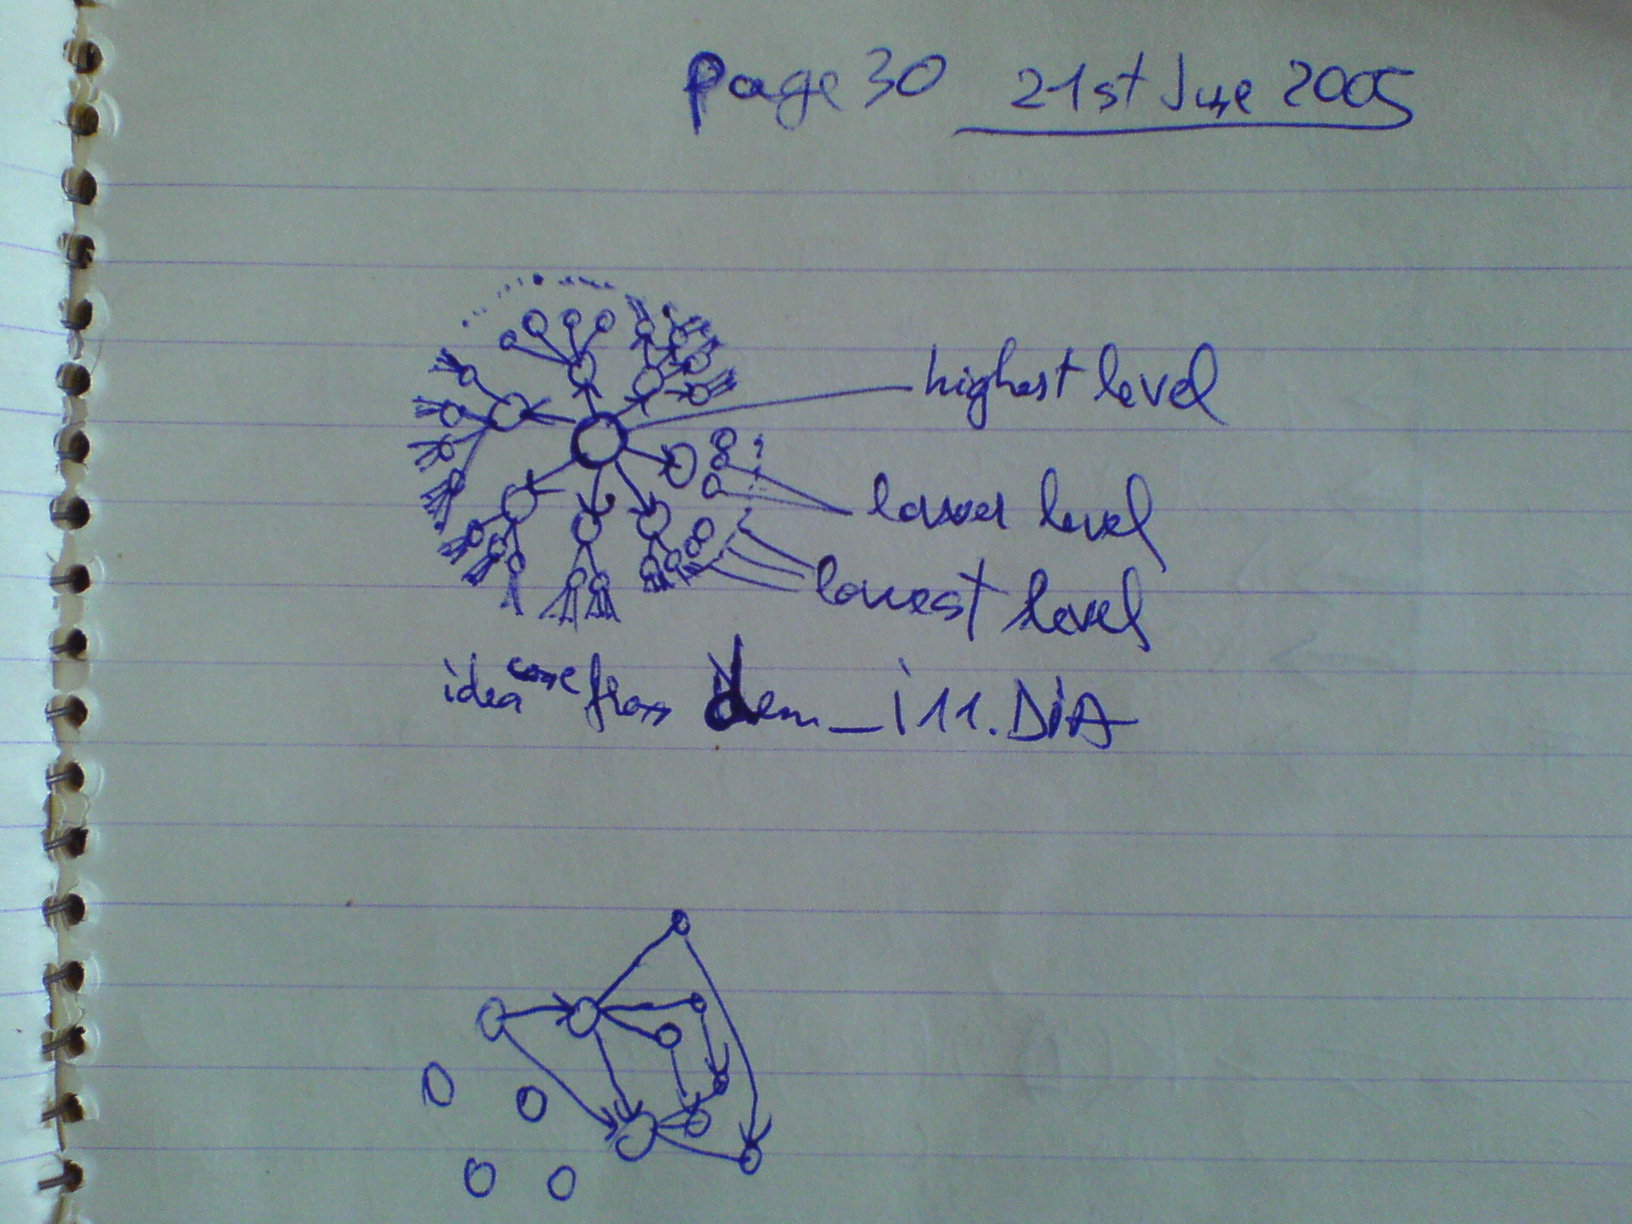 page 30 21st June 2005
highest level
lower level
lowest level
idea come from dem_i11.DiA